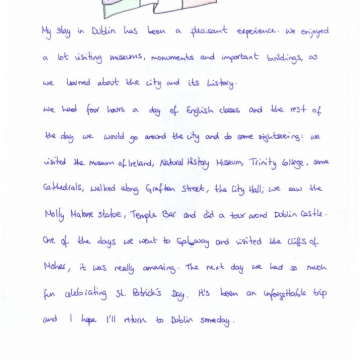 My stay in Dublin has been a pleasant experience. We enjoyed
a lot visiting museums, monuments and important buildings, as
we learned about the city and its history.
We had four hours a day of English classes and the rest of
the day we would go around the city and do some sightseeing: we
visited the museum of Ireland, Natural History Museum, Trinity College, some
Cathedrals, walked along Grafton street, the City Hall; we saw the
Molly Malone statue, Temple Bar and did a tour around Dublin Castle.
One of the days we went to Galway and visited the Cliffs of
Moher, it was really amazing. The next day we had so much
fun celebrating St. Patrick's Day. It's been an unforgettable trip
and I hope I'll return to Dublin someday.